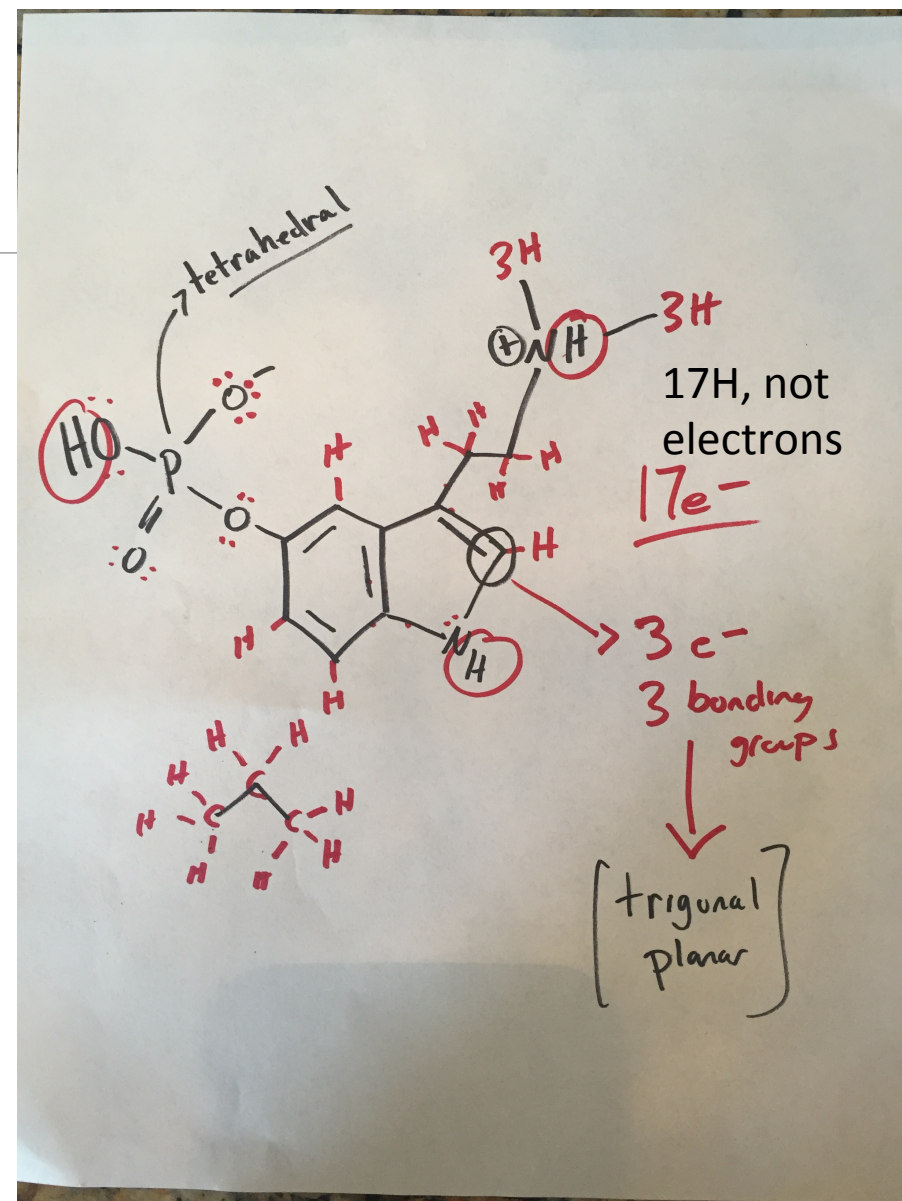 tetrahedral
3H
3H
⊕NH
17H, not
electrons
17e-
HO
P
O-
O
O
H
H
H
H
H
H
H
H
N
H
3 e-
3 bonding
groups
trigonal
planar
H
H
H
H
H
C
C
C
H
H
H